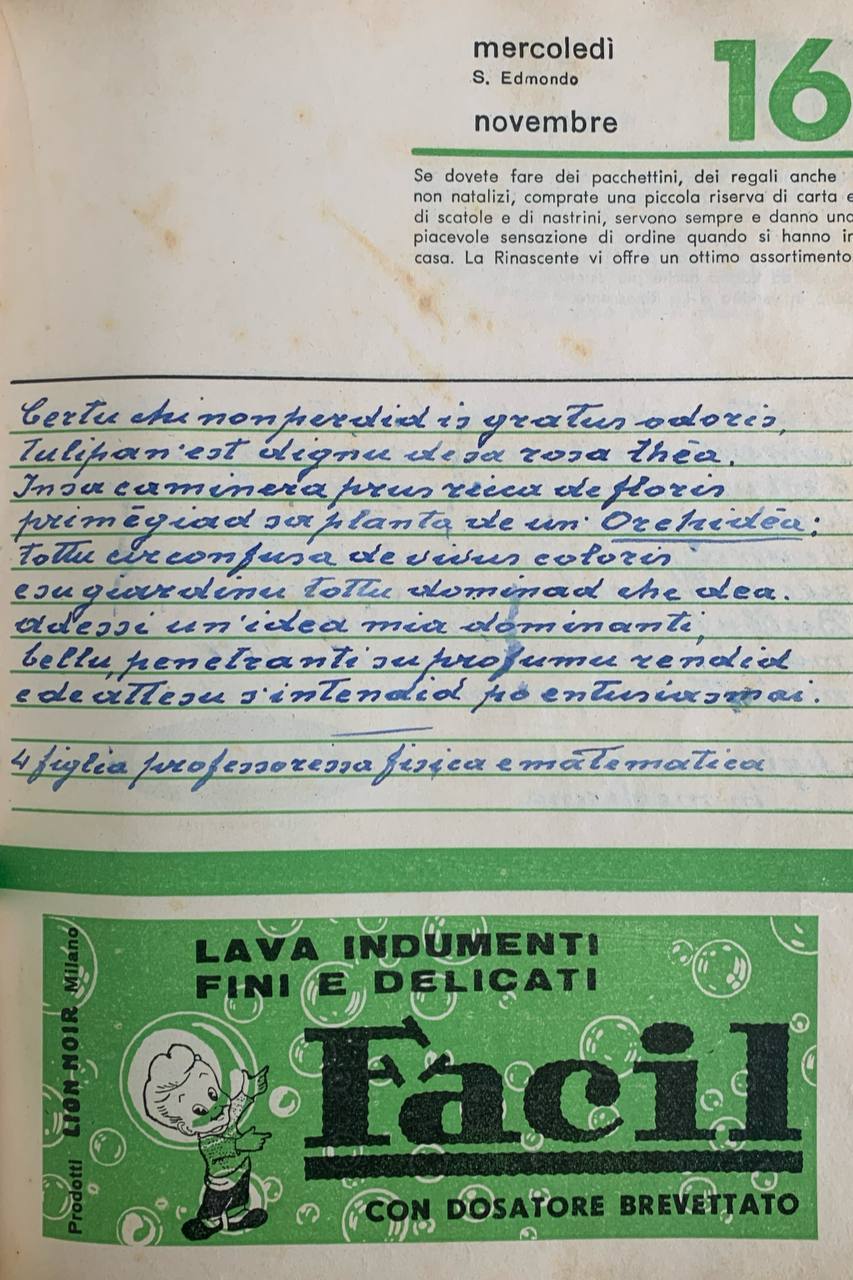 mercoledì
S. Edmondo
novembre
16
Se dovete fare dei pacchettini, dei regali anche
non natalizi, comprate una piccola riserva di carta e
di scatole e di nastrini, servono sempre e danno una
piacevole sensazione di ordine quando si hanno in
casa. La Rinascente vi offre un ottimo assortimento
Certu chi non perdid is gratus odoris,
Tulipan'est dignu de sa rosa thēa.
In sa caminera prus ricca de floris
primēgiad sa planta de un' Orchidēa:
tottu circonfusa de vivus coloris
e su giardinu tottu dominad che dea.
adessi un'idea mia dominanti,
bellu, penetranti su profumu rendid
e de attesu s'intendid po entusiasmai.
4 figlia professoressa fisica e matematica
Prodotti LION NOIR Milano
LAVA INDUMENTI
FINI E DELICATI
Fàcil
CON DOSATORE BREVETTATO